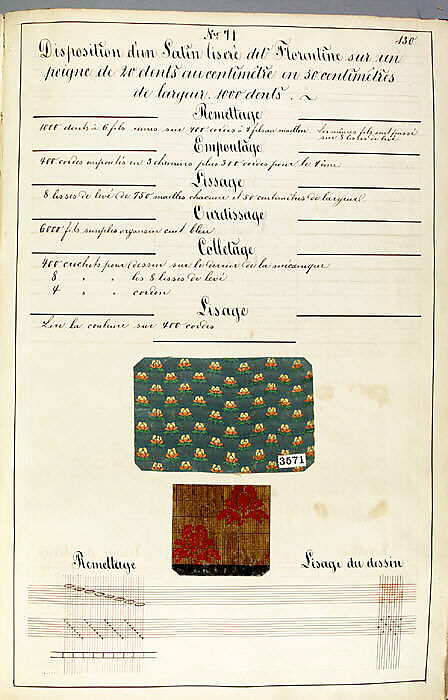 No. 71
130
Disposition d'un Satin liseré dit Florentine sur un
peigne de 20 dents au centimètre en 50 centimètres
de largeur. 1000 dents.
Remettage
1000 dents à 6 fils remis sur 400 cordes à fils au maillon. Les mêmes fils sont passés
sur 8 lisses de levé
Empoutage
400 cordes empoutés en 3 chemins plus 300 cordes pour le 4ème
Lissage
8 lisses de levé de 750 mailles chacune et 50 centimètres de largeur
Ourdissage
6000 fils simples organsin cuit bleu
Colletage
400 crochets pour dessin sur le derrière de la mécanique
8 " " les 8 lisses de levé
4 " " cordon
Lisage
Lire la couleur sur 400 cordes
3571
Remettage
Lisage du dessin